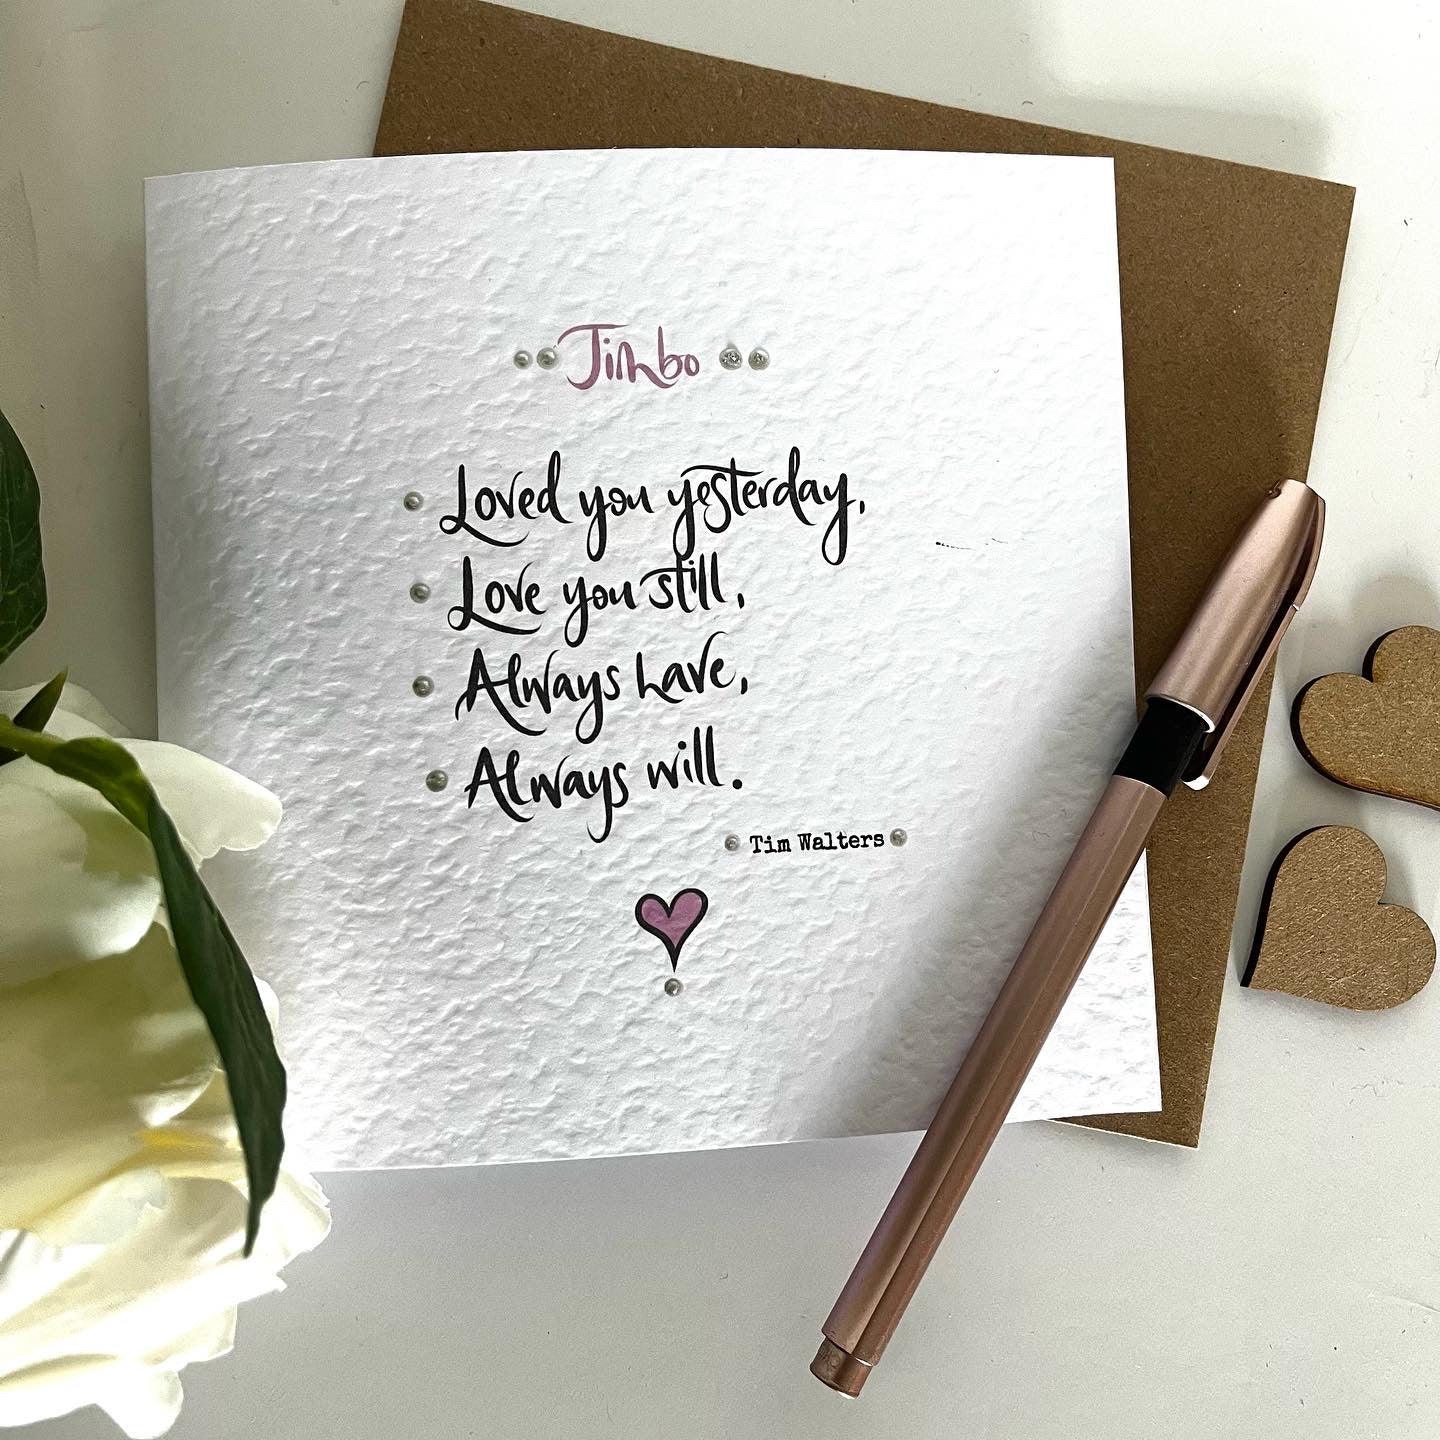 Jimbo
Loved you yesterday,
Love you still,
Always have,
Always will.
Tim Walters